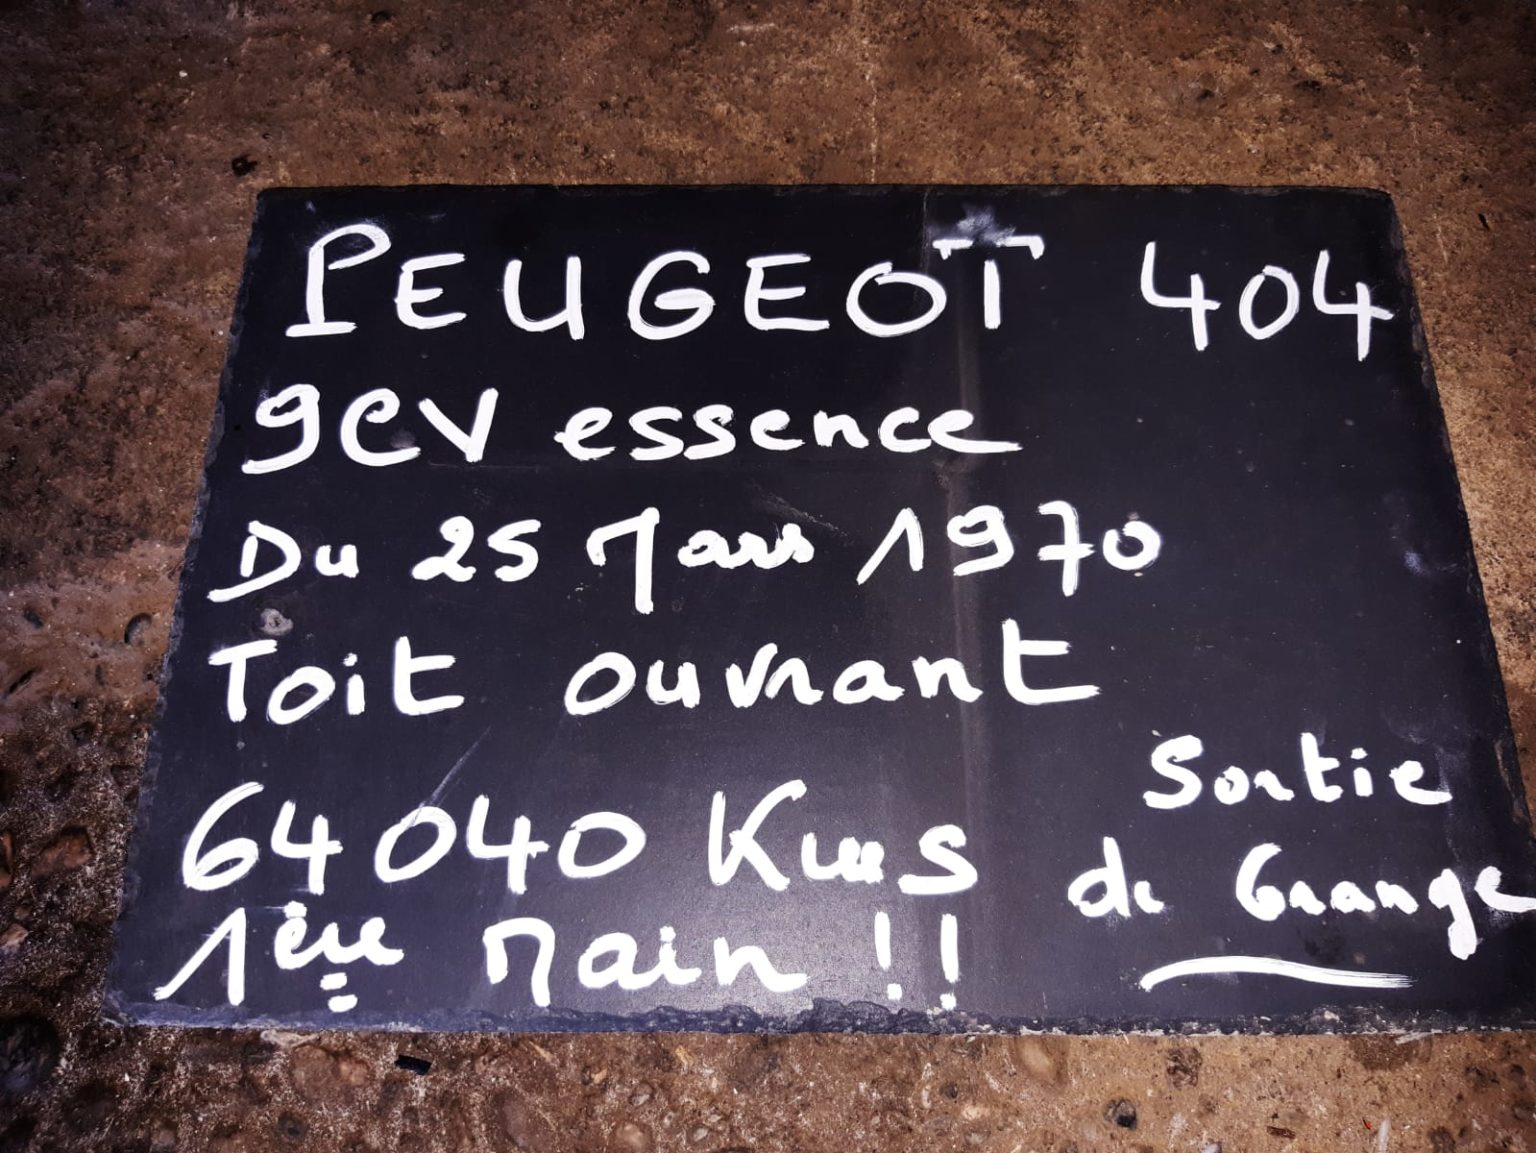 PEUGEOT 404
9CV essence
Du 25 Mars 1970
Toit ouvrant
64040 Kms
1ère Main !!
Sortie
de Grange